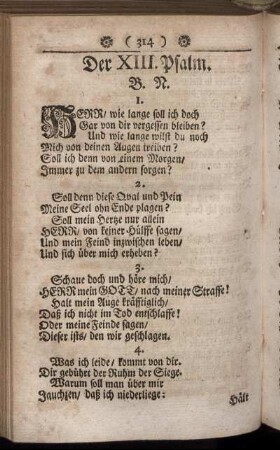 ( 314 )
Der XIII. Psalm.
B. N.
1.
HERR/ wie lange soll ich doch
Gar von dir vergessen bleiben?
Und wie lange wilst du noch
Mich von deinen Augen treiben?
Soll ich denn von einem Morgen/
Immer zu dem andern sorgen?
2.
Soll denn diese Qual und Pein
Meine Seel ohn Ende plagen?
Soll mein Hertze nur allein
HERR/ von keiner Hülffe sagen/
Und mein Feind inzwischen leben/
Und sich über mich erheben?
3.
Schaue doch und höre mich/
HERR mein GOTT/ nach meiner Straffe!
Halt mein Auge kräfftiglich/
Daß ich nicht im Tod entschlaffe!
Oder meine Feinde sagen/
Dieser ists/ den wir geschlagen.
4.
Was ich leide/ kommt von dir.
Dir gebührt der Ruhm der Siege.
Warum soll man über mir
Jauchzen/ daß ich niederliege:
Hält